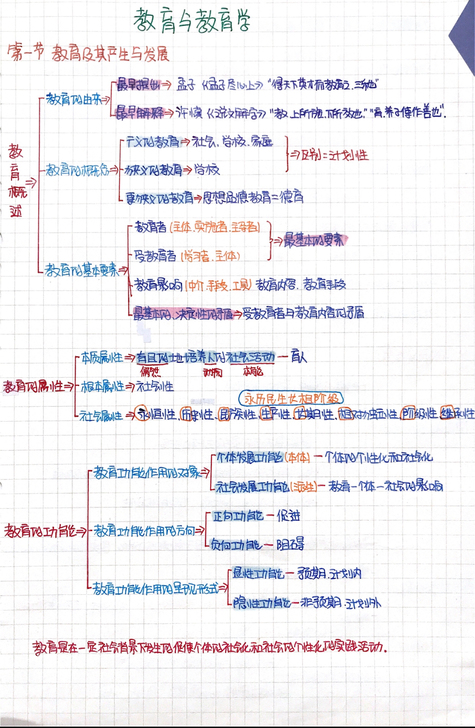 教育与教育学
第一节 教育及其产生与发展
教育概述
教育的由来
最早提出→孟子《孟子·尽心上》"得天下英才而教育之,三乐也"
最早解释→许慎《说文解字》"教,上所施,下所效也." "育,养子使作善也".
教育的概念
广义的教育→社会、学校、家庭
狭义的教育→学校
⇒区别=计划性
更狭义的教育→思想品德教育=德育
教育的基本要素
教育者(主体、实施者、主导者)
受教育者(学习者、主体)
⇒最基本的要素
教育影响(中介、手段、工具) 教育内容、教育手段
最基本的、决定性的矛盾→受教育者与教育内容的矛盾
教育的属性
本质属性⇒有目的地培养人的社会活动—育人
根本属性⇒社会性
永历民生长相阶级
社会属性⇒永恒性、历史性、民族性、生产性、长期性、相对独立性、阶级性、继承性
教育的功能
教育功能作用的对象
个体发展功能(本体)—个体的个性化和社会化
社会发展功能(派生)—教育→个体→社会的影响
教育功能作用的方向
正向功能—促进
负向功能—阻碍
教育功能作用的呈现形式
显性功能—预期、计划内
隐性功能—非预期、计划外
教育是在一定社会背景下发生的促使个体的社会化和社会的个性化的实践活动.